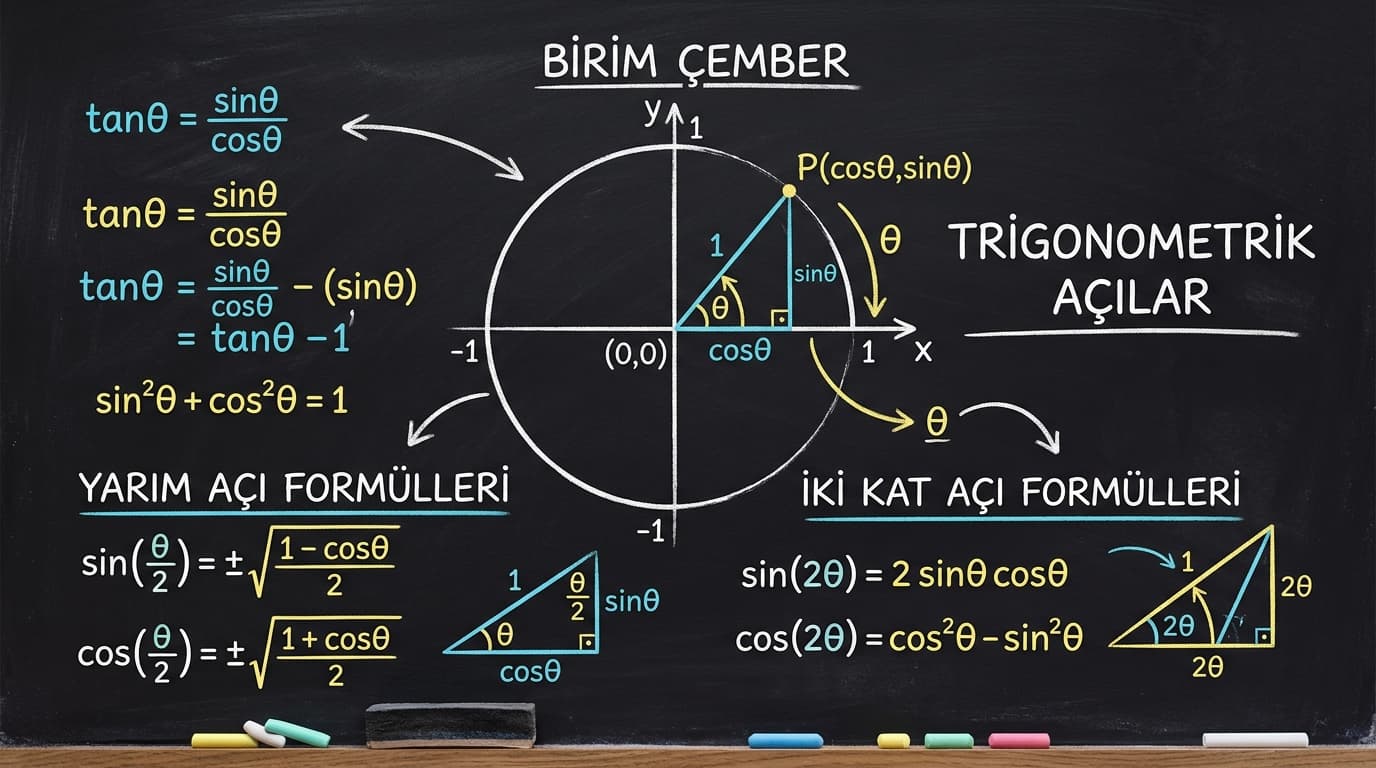 BİRİM ÇEMBER
tanθ = sinθ/cosθ
tanθ = sinθ/cosθ
tanθ = sinθ/cosθ − (sinθ)
= tanθ − 1'
sin²θ + cos²θ = 1
y
1
P(cosθ,sinθ)
1
θ
sinθ
θ
-1
(0,0)
cosθ
1
x
θ
-1
TRİGONOMETRİK
AÇILAR
YARIM AÇI FORMÜLLERİ
sin(θ/2) = ±√((1 − cosθ)/2)
cos(θ/2) = ±√((1 + cosθ)/2)
1
θ/2
sinθ
θ
cosθ
İKİ KAT AÇI FORMÜLLERİ
sin(2θ) = 2 sinθ cosθ
cos(2θ) = cos²θ − sin²θ
1
2θ
2θ
2θ